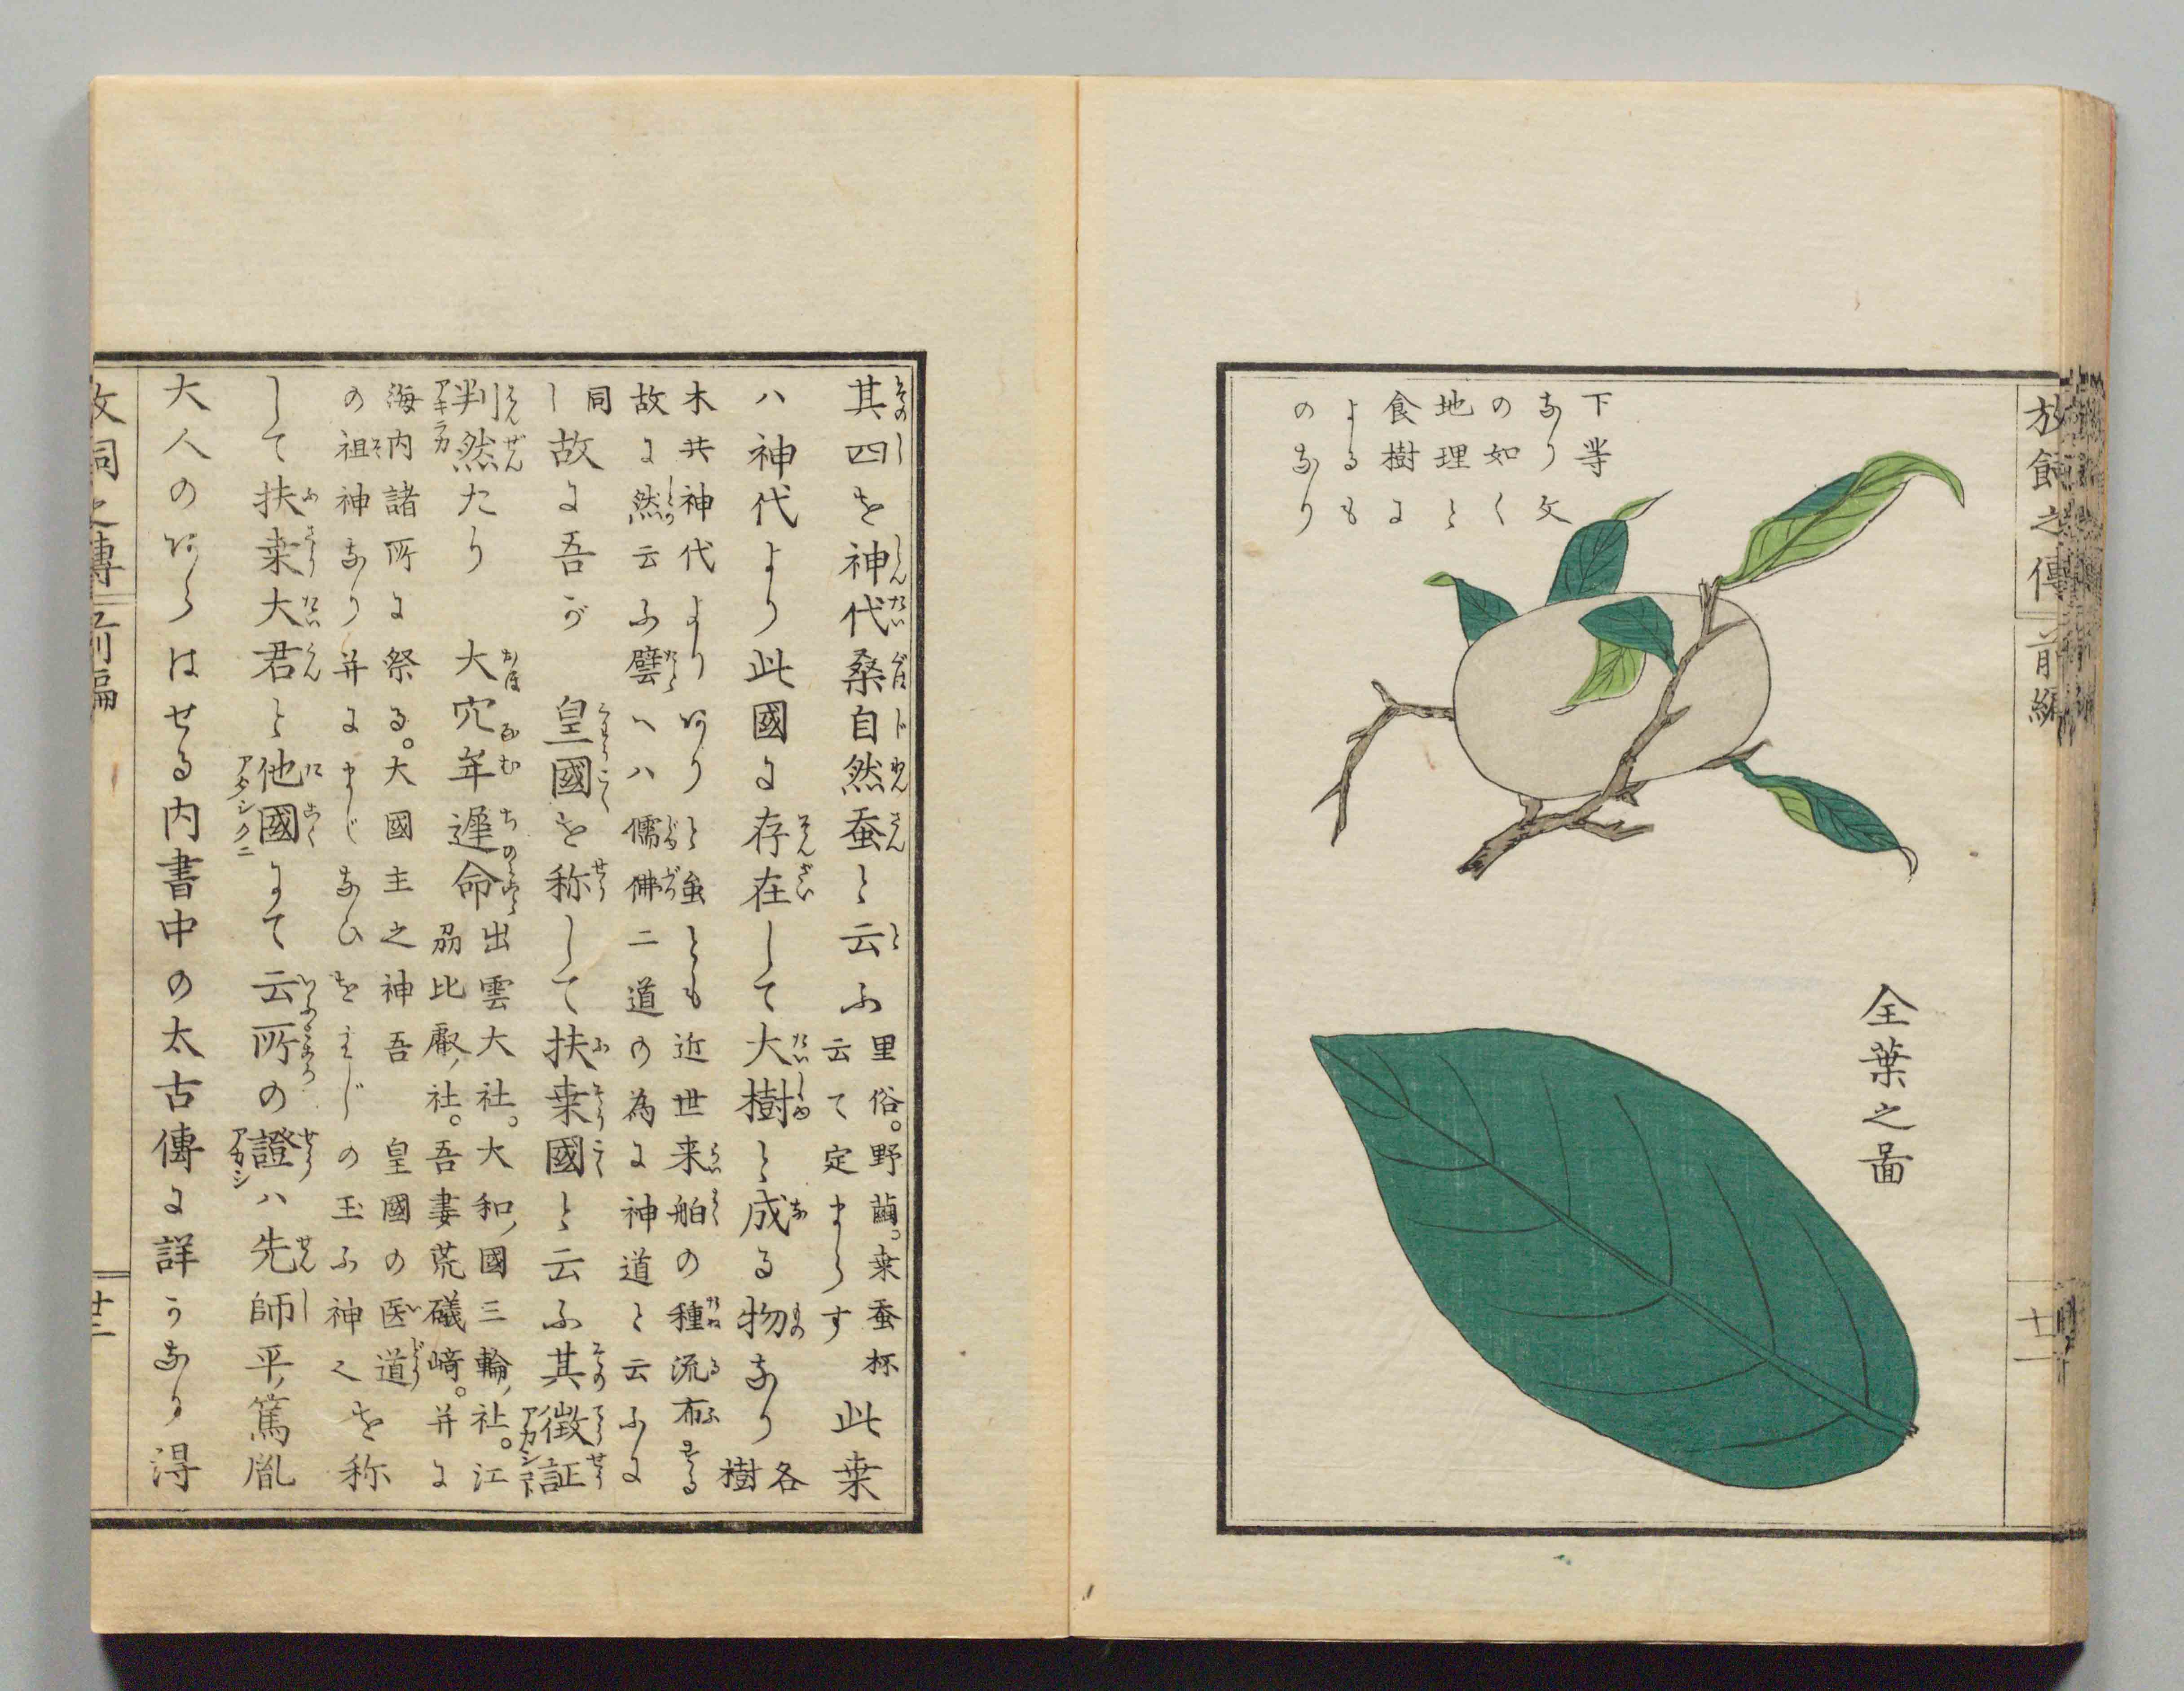 放飼之傳 前編
十二
下等
なり文
の如く
地理と
食樹に
よるも
のなり
全葉之圖
其四を神代桑自然蚕と云ふ里俗。野繭。桒蚕杯
云て定まらす此桒
ハ神代より此國に存在して大樹と成る物なり各
樹
木共神代よりありと虽とも近世来舶の種流布する
故に然云ふ譬へハ儒佛二道の為に神道と云ふに
同
し故に吾が 皇國を称して扶桒國と云ふ其徴証
判然たり 大穴牟遅命出雲大社。大和、國三輪、社。江
刕比叡、社。吾妻荒礒﨑。并に
海内諸所に祭る。大國主之神吾 皇國の医道
の祖神なり并にまじなひをまじの玉ふ神〻を称
して扶桒大君と他國にて云所の證ハ先師平、篤胤
大人のあらはせる内書中の太古傳に詳うなり得
放飼之傳 前編